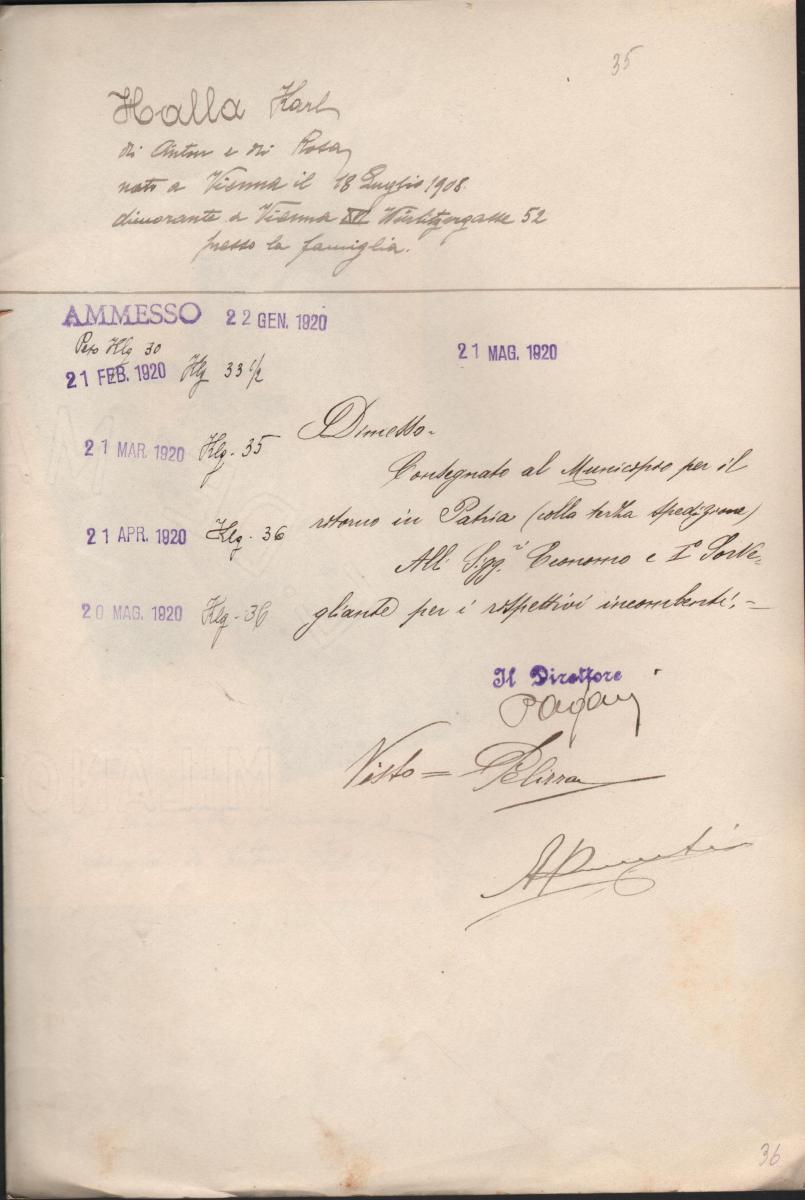 35
Halla Karl
di Anton e di Rosa
nato a Vienna il 18 Luglio 1908.
dimorante a Vienna XVI Wurlitzergasse 52
presso la famiglia.
AMMESSO 22 GEN. 1920
Peso Klg 30
21 FEB. 1920 Klg 33 1/2
21 MAR. 1920 Klg. 35
21 APR. 1920 Klg. 36
20 MAG. 1920 Klg. 36
21 MAG. 1920
Dimesso.
Consegnato al Municipio per il
ritorno in Patria (colla terza spedizione)
Alli Sigg.ri Economo e I° Sorve-
gliante per i rispettivi incombenti.-
Il Direttore
Pagani
Visto =
36